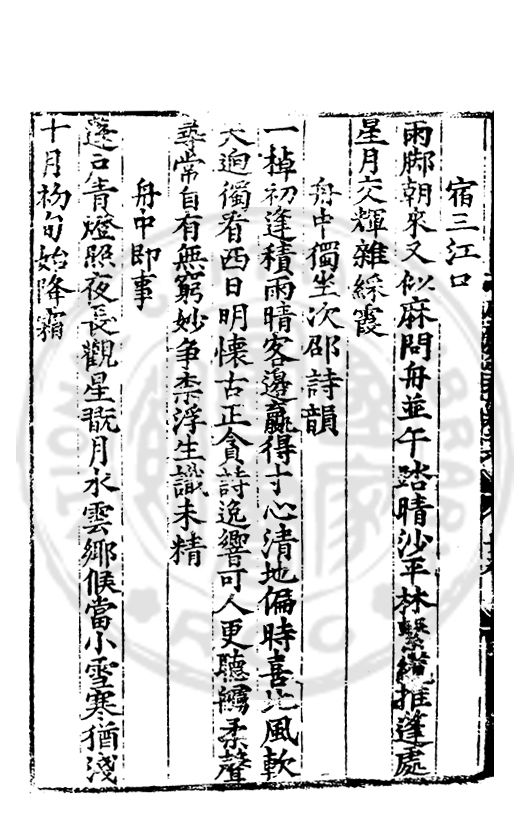 宿三江口
雨脚朝來又似麻問舟並午踏晴沙平林繫纜推逢處
星月交輝雜綵霞
舟中獨坐次邵詩韻
一棹初逢積雨晴客邊贏得寸心清地偏時喜北風軟
天迥獨看西日明懷古正貪詩逸響可人更聽艣柔聲
尋常自有無窮妙争柰浮生識未精
舟中即事
蓬口青燈照夜長觀星翫月水雲鄉候當小雪寒猶淺
十月初旬始降霜